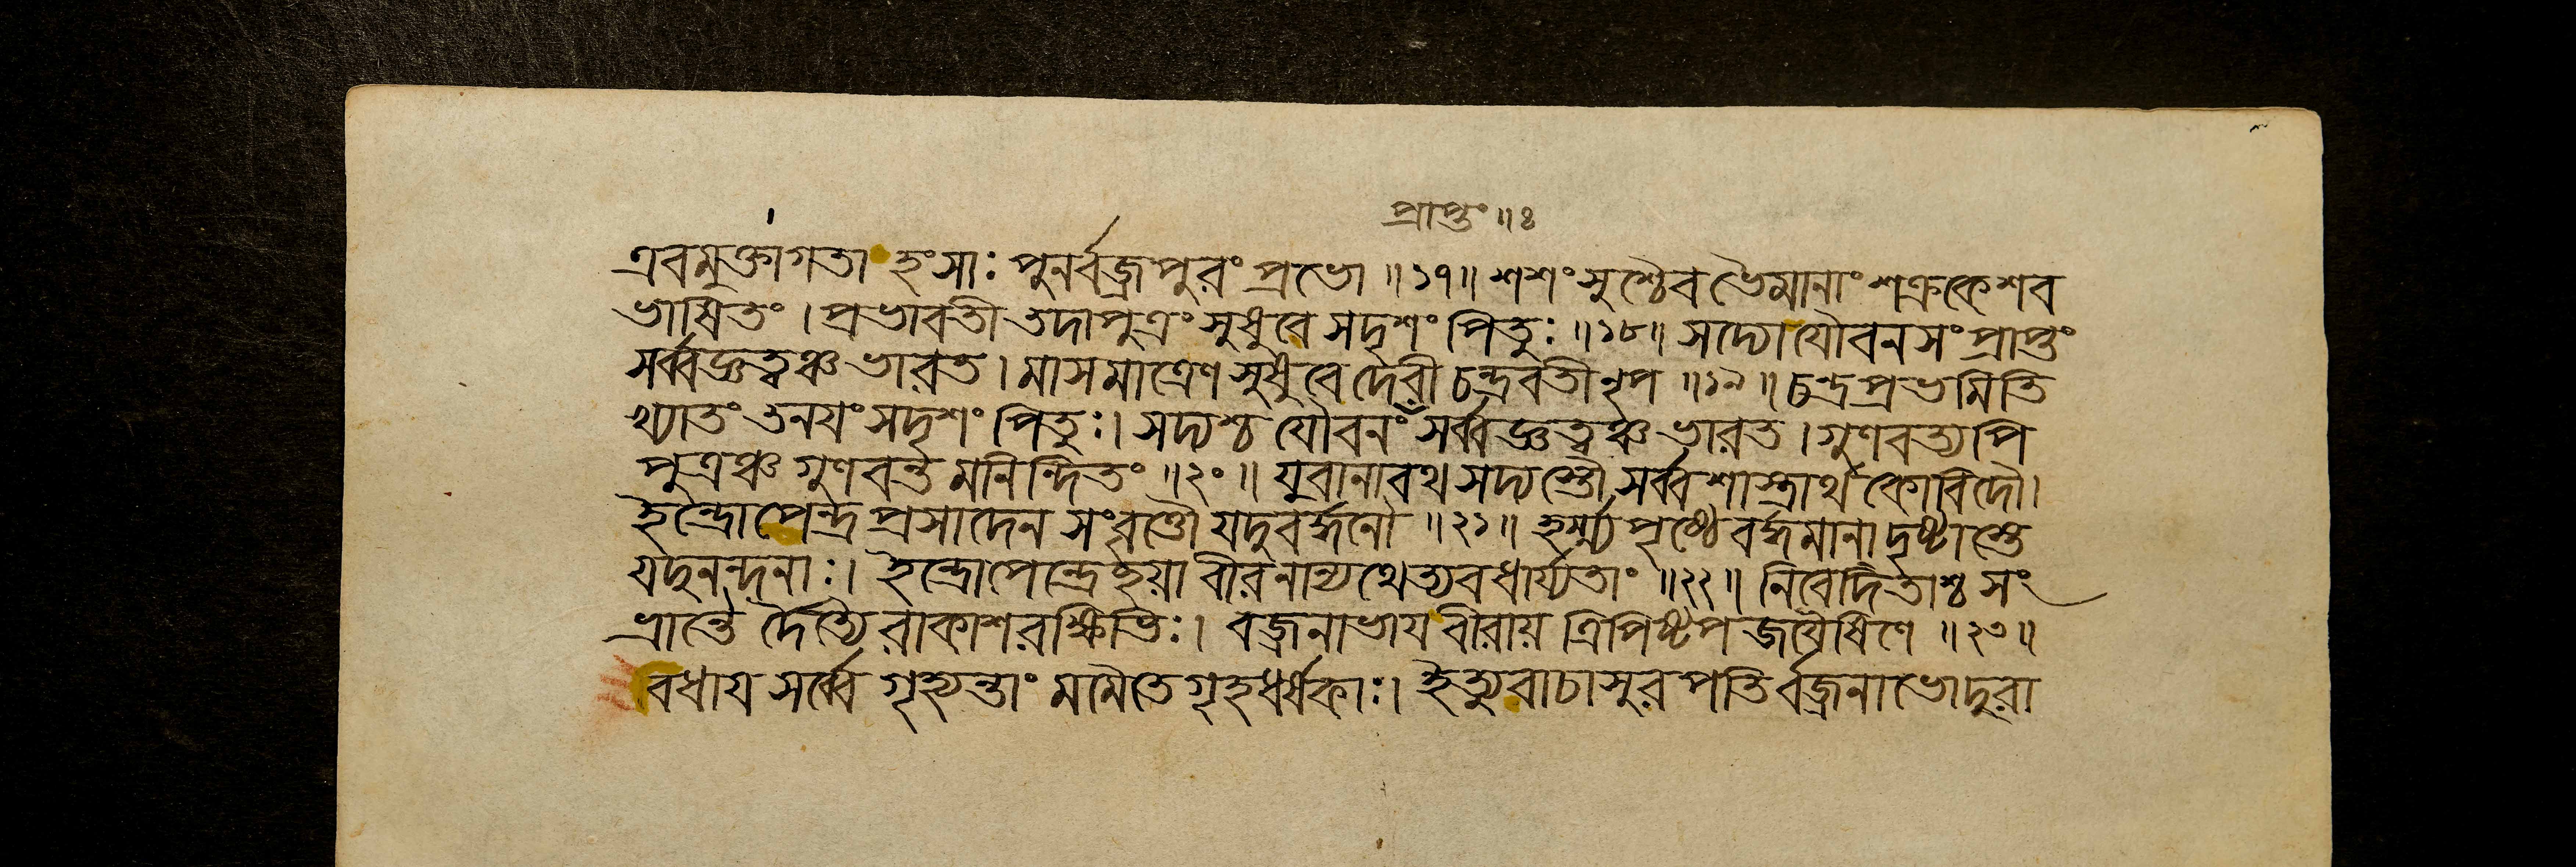 প্রাপ্তং ॥ঃ
এবমুক্তাগতা হংসাঃ পুনর্বজ্রপুরং প্রভো ॥১৭॥ শশংসুশ্চৈব ভৈমানাং শক্রকেশব
ভাষিতং । প্রভাবতী তদাপুত্রং সুষুবে সদৃশং পিতুঃ ॥১৮॥ সদ্যোযৌবনসংপ্রাপ্তং
সর্ব্বজ্ঞত্বঞ্চ ভারত । মাসমাত্রেণ সুষুবে দেবী চন্দ্রবতী নৃপ ॥১৯॥ চন্দ্রপ্রভমিতি
খ্যাতং তনয়ং সদৃশং পিতুঃ । সদ্যশ্চ যৌবনং সর্ব্বজ্ঞত্বঞ্চ ভারত । গুণবত্যপি
পুত্রঞ্চ গুণবন্তমনিন্দিতং ॥২০॥ যুবানাবথ সদ্যস্তৌ সর্ব্বশাস্ত্রার্থকোবিদৌ ।
ইন্দ্রোপেন্দ্রপ্রসাদেন সংবৃত্তৌ যদুবর্দ্ধনৌ ॥২১॥ হর্ম্ম্যপৃষ্ঠে বর্দ্ধমানা দৃষ্টাস্তে
যদুনন্দনাঃ । ইন্দ্রোপেন্দ্রেচ্ছয়া বীর নান্যথেত্যবধার্য্যতাং ॥২২॥ নিবেদিতাশ্চ সং
ভ্রান্তৈ র্দৈত্যৈরাকাশরক্ষিভিঃ । বজ্রনাভায বীরায় ত্রিপিষ্টপজয়ৈষিণে ॥২৩॥
বধায সর্ব্বে গৃহ্যন্তাং মমৈতে গৃহধর্ষকাঃ । ইত্যুবাচাসুরপতির্বজ্রনাভোদুরা